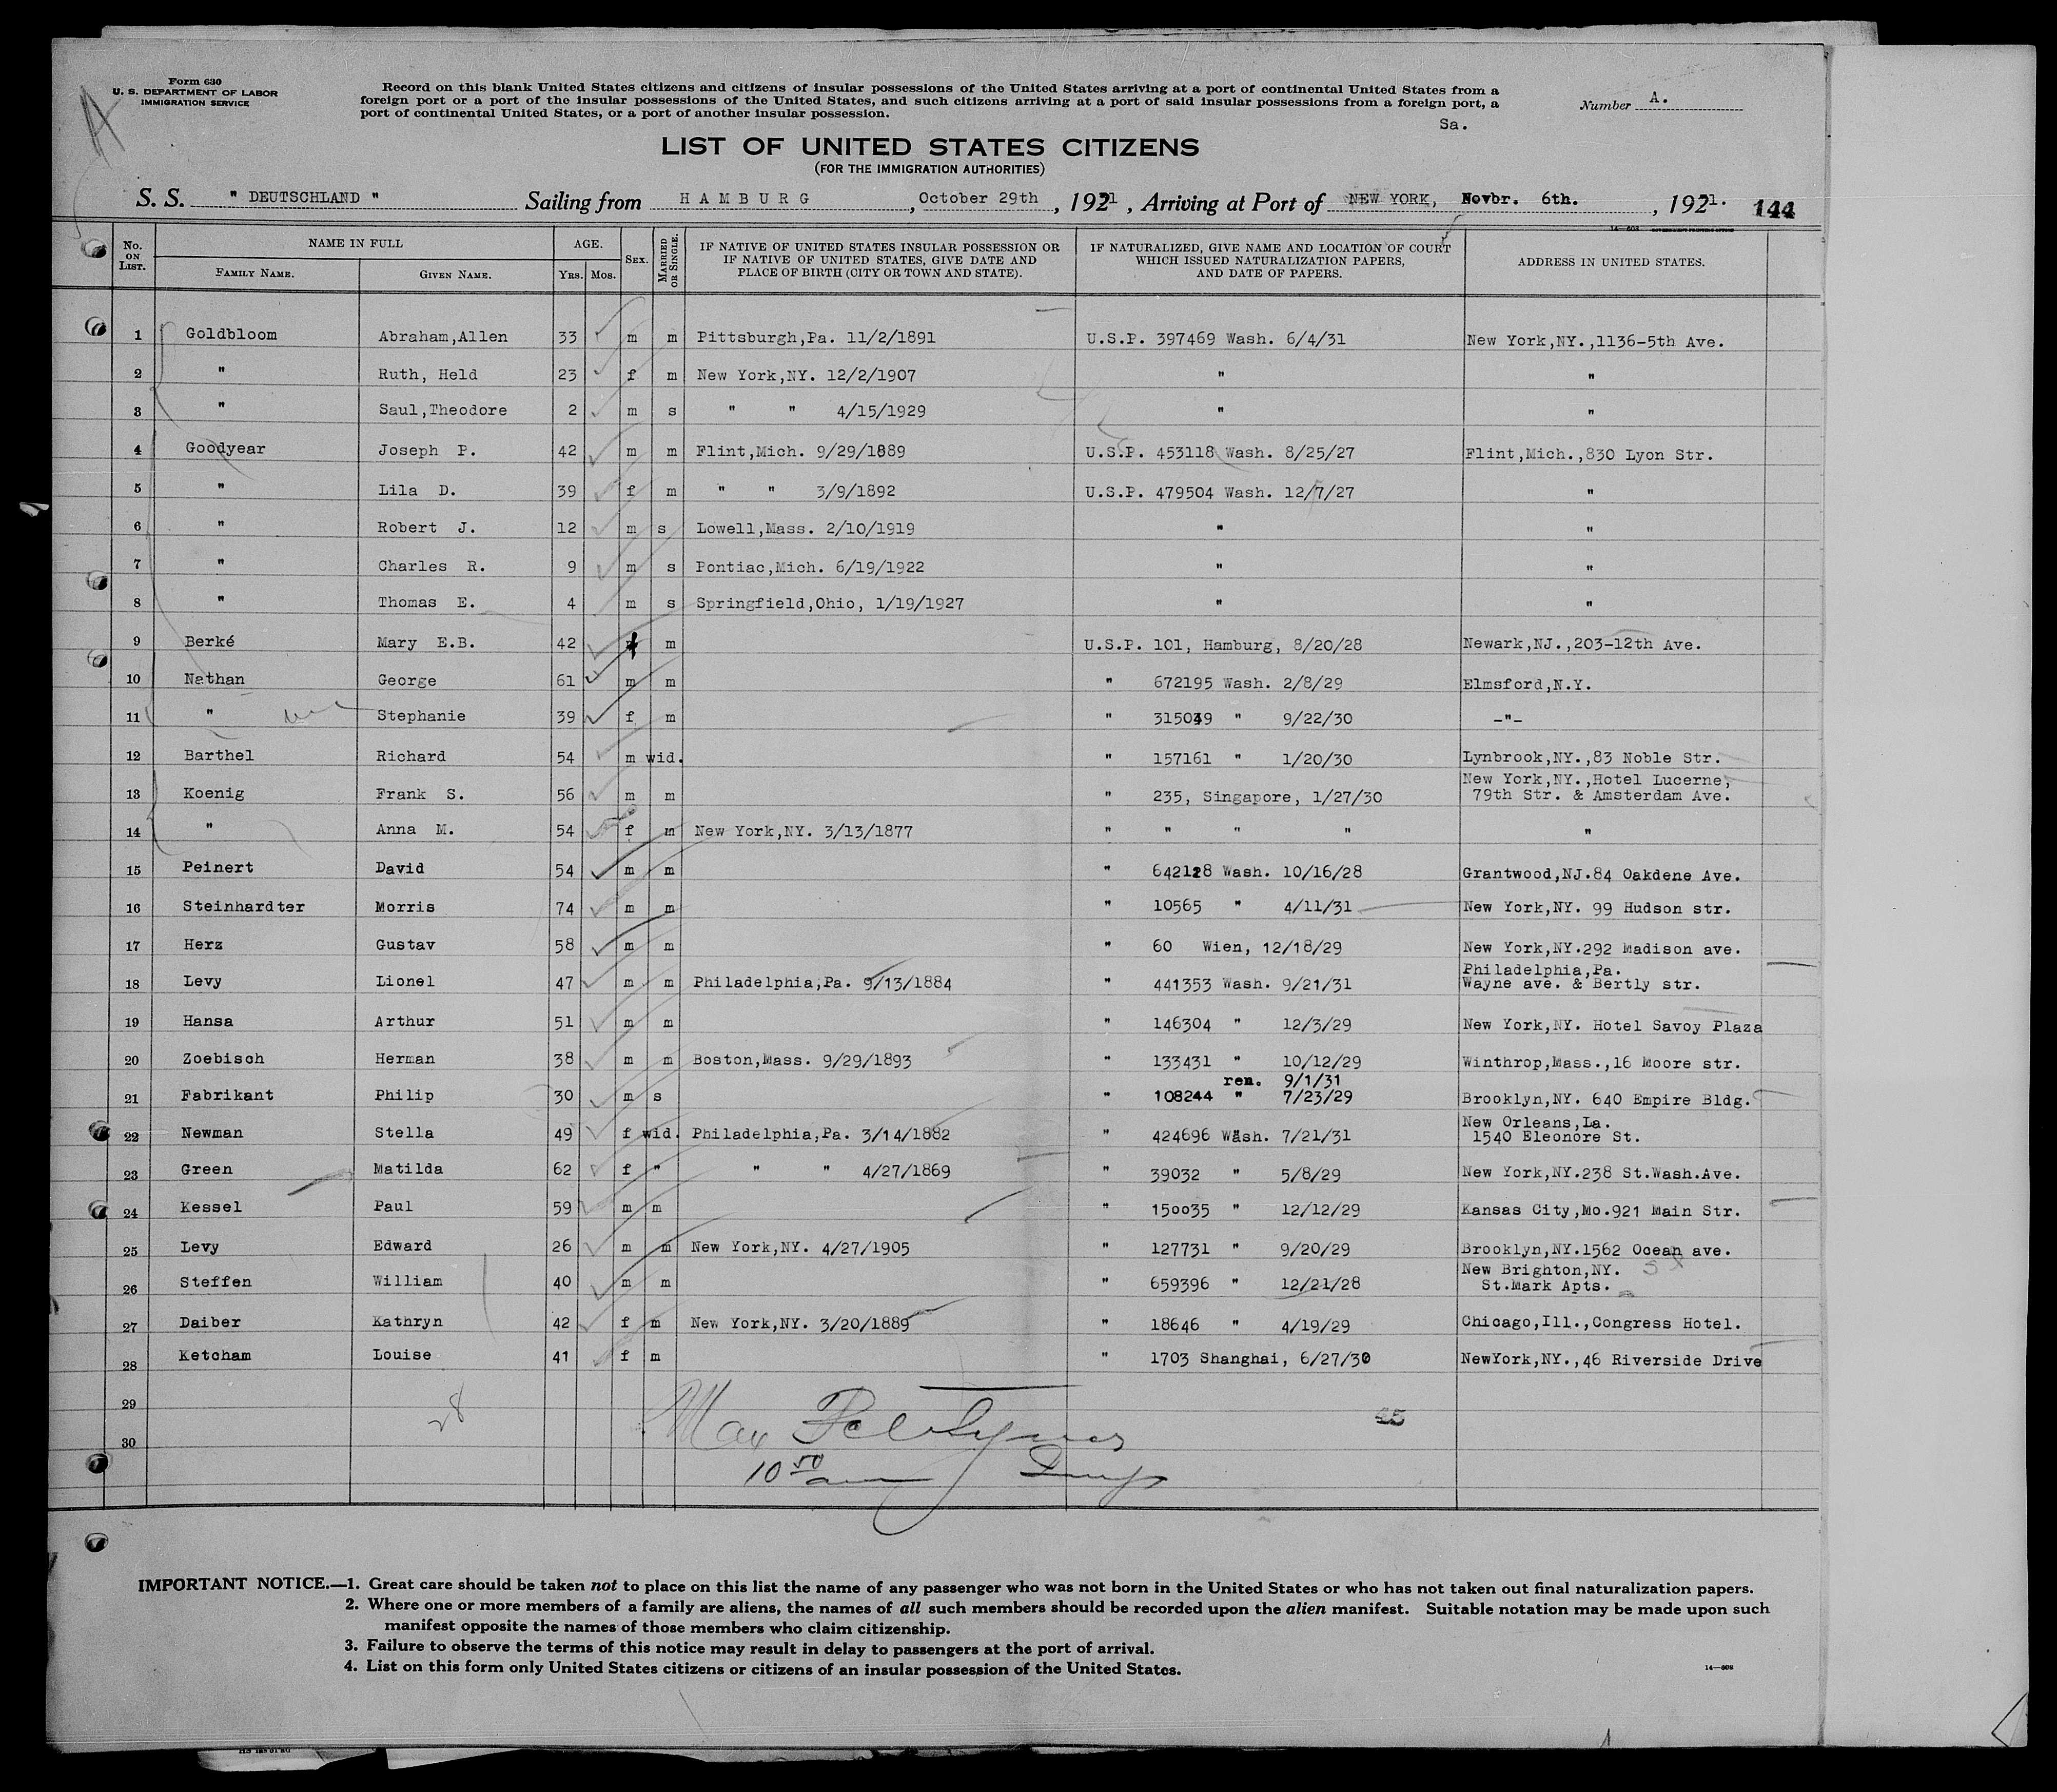 Form 630
U. S. DEPARTMENT OF LABOR
IMMIGRATION SERVICE
Record on this blank United States citizens and citizens of insular possessions of the United States arriving at a port of continental United States from a
foreign port or a port of the insular possessions of the United States, and such citizens arriving at a port of said insular possessions from a foreign port, a
port of continental United States, or a port of another insular possession.
Number A.
Sa.
LIST OF UNITED STATES CITIZENS
(FOR THE IMMIGRATION AUTHORITIES)
S. S. " DEUTSCHLAND " Sailing from HAMBURG, October 29th, 1921, Arriving at Port of NEW YORK, Novbr. 6th., 1921. 144
No. ON LIST. NAME IN FULL FAMILY NAME. GIVEN NAME. AGE. YRS. MOS. SEX. MARRIED OR SINGLE. IF NATIVE OF UNITED STATES INSULAR POSSESSION OR IF NATIVE OF UNITED STATES, GIVE DATE AND PLACE OF BIRTH (CITY OR TOWN AND STATE). IF NATURALIZED, GIVE NAME AND LOCATION OF COURT WHICH ISSUED NATURALIZATION PAPERS, AND DATE OF PAPERS. ADDRESS IN UNITED STATES.
1 Goldbloom Abraham,Allen 33 m m Pittsburgh,Pa. 11/2/1891 U.S.P. 397469 Wash. 6/4/31 New York,NY.,1136-5th Ave.
2 " Ruth, Held 23 f m New York,NY. 12/2/1907 " "
3 " Saul,Theodore 2 m s " " 4/15/1929 " "
4 Goodyear Joseph P. 42 m m Flint,Mich. 9/29/1889 U.S.P. 453118 Wash. 8/25/27 Flint,Mich.,830 Lyon Str.
5 " Lila D. 39 f m " " 3/9/1892 U.S.P. 479504 Wash. 12/7/27 "
6 " Robert J. 12 m s Lowell,Mass. 2/10/1919 " "
7 " Charles R. 9 m s Pontiac,Mich. 6/19/1922 " "
8 " Thomas E. 4 m s Springfield,Ohio, 1/19/1927 " "
9 Berké Mary E.B. 42 f m U.S.P. 101, Hamburg, 8/20/28 Newark,NJ.,203-12th Ave.
10 Nathan George 61 m m " 672195 Wash. 2/8/29 Elmsford,N.Y.
11 " Stephanie 39 f m " 315049 " 9/22/30 -"-
12 Barthel Richard 54 m wid. " 157161 " 1/20/30 Lynbrook,NY.,83 Noble Str.
13 Koenig Frank S. 56 m m " 235, Singapore, 1/27/30 New York,NY.,Hotel Lucerne, 79th Str. & Amsterdam Ave.
14 " Anna M. 54 f m New York,NY. 3/13/1877 " " " " "
15 Peinert David 54 m m " 642128 Wash. 10/16/28 Grantwood,NJ.84 Oakdene Ave.
16 Steinhardter Morris 74 m m " 10565 " 4/11/31 New York,NY. 99 Hudson str.
17 Herz Gustav 58 m m " 60 Wien, 12/18/29 New York,NY.292 Madison ave.
18 Levy Lionel 47 m m Philadelphia,Pa. 9/13/1884 " 441353 Wash. 9/21/31 Philadelphia,Pa. Wayne ave. & Bertly str.
19 Hansa Arthur 51 m m " 146304 " 12/3/29 New York,NY. Hotel Savoy Plaza
20 Zoebisch Herman 38 m m Boston,Mass. 9/29/1893 " 133431 " 10/12/29 Winthrop,Mass.,16 Moore str.
ren. 9/1/31
21 Fabrikant Philip 30 m s " 108244 " 7/23/29 Brooklyn,NY. 640 Empire Bldg.
22 Newman Stella 49 f wid. Philadelphia,Pa. 3/14/1882 " 424696 Wash. 7/21/31 New Orleans,La. 1540 Eleonore St.
23 Green Matilda 62 f " " " 4/27/1869 " 39032 " 5/8/29 New York,NY.238 St.Wash.Ave.
24 Kessel Paul 59 m m " 150035 " 12/12/29 Kansas City,Mo.921 Main Str.
25 Levy Edward 26 m m New York,NY. 4/27/1905 " 127731 " 9/20/29 Brooklyn,NY.1562 Ocean ave.
26 Steffen William 40 m m " 659396 " 12/21/28 New Brighton,NY. St.Mark Apts.
27 Daiber Kathryn 42 f m New York,NY. 3/20/1889 " 18646 " 4/19/29 Chicago,Ill.,Congress Hotel.
28 Ketcham Louise 41 f m " 1703 Shanghai, 6/27/30 NewYork,NY.,46 Riverside Drive
29
28
30
Max
10 50 am
IMPORTANT NOTICE.—1. Great care should be taken not to place on this list the name of any passenger who was not born in the United States or who has not taken out final naturalization papers.
2. Where one or more members of a family are aliens, the names of all such members should be recorded upon the alien manifest. Suitable notation may be made upon such
manifest opposite the names of those members who claim citizenship.
3. Failure to observe the terms of this notice may result in delay to passengers at the port of arrival.
4. List on this form only United States citizens or citizens of an insular possession of the United States.
14—608